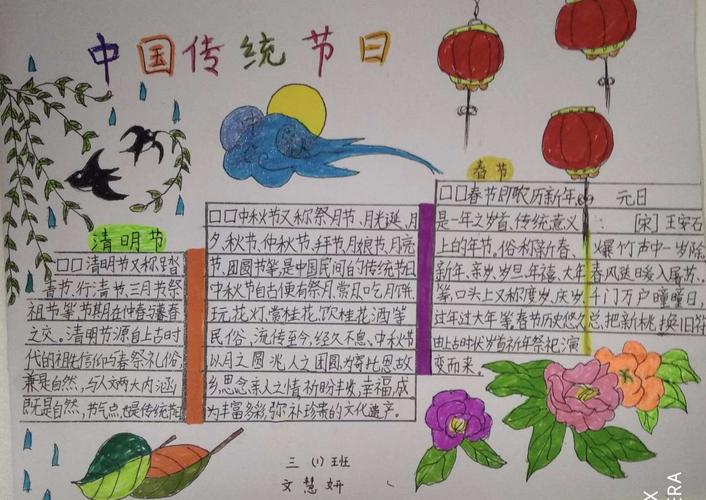 中国传统节日
清明节
□□清明节又称踏
青节、行清节、三月节祭
祖节等节期在仲春与暮春
之交。清明节源自上古时
代的祖先信仰与春祭礼俗,
兼具自然,与人文两大内涵
既是自然,节气点,也是传统节
□□中秋节又称祭月节、月光诞、月
夕、秋节、仲秋节、拜节、月娘节、月亮
节、团圆节等,是中国民间的传统节日
中秋节自古便有祭月、赏月、吃月饼、
玩花灯、赏桂花、饮桂花酒等
民俗,流传至今,经久不息、中秋节
以月之圆兆人之团圆,为寄托思故
乡,思念亲人之情,祈盼丰收,幸福,成
为丰富多彩,弥补珍贵的文化遗产。
春节
□□春节即农历新年,
是一年之岁首、传统意义
上的年节。俗称新春、
新年、新岁、岁旦、年禧、大年
等,口头上又称度岁、庆岁、
过年过大年等,春节历史悠久
由上古时代岁首祈年祭祀演
变而来。
元日
[宋] 王安石
爆竹声中一岁除
春风送日暖入屠苏、
千门万户曈曈日,
总把新桃换旧符
三(1)班
文慧妍